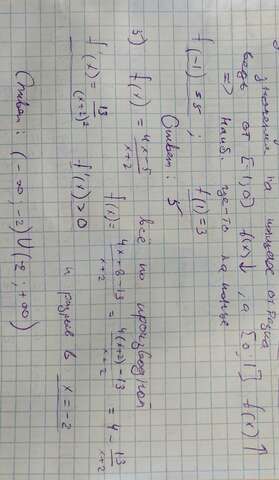 значения на концах отрезка
ведь от [-1;0) f(x)↓, а [0;1] f(x)↑
=> наиб. где-то на конце
f(-1) = 5; f(1) = 3
Ответ: 5
5) f(x) = 4x-5/x+2 всё по производной
f(x) = 4x+8-13/x+2 = 4(x+2)-13/x+2 = 4 - 13/x+2
f'(x) = 13/(x+2)² f'(x)>0 и разрыв в x=-2
Ответ: (-∞;-2)∪(-2;+∞)